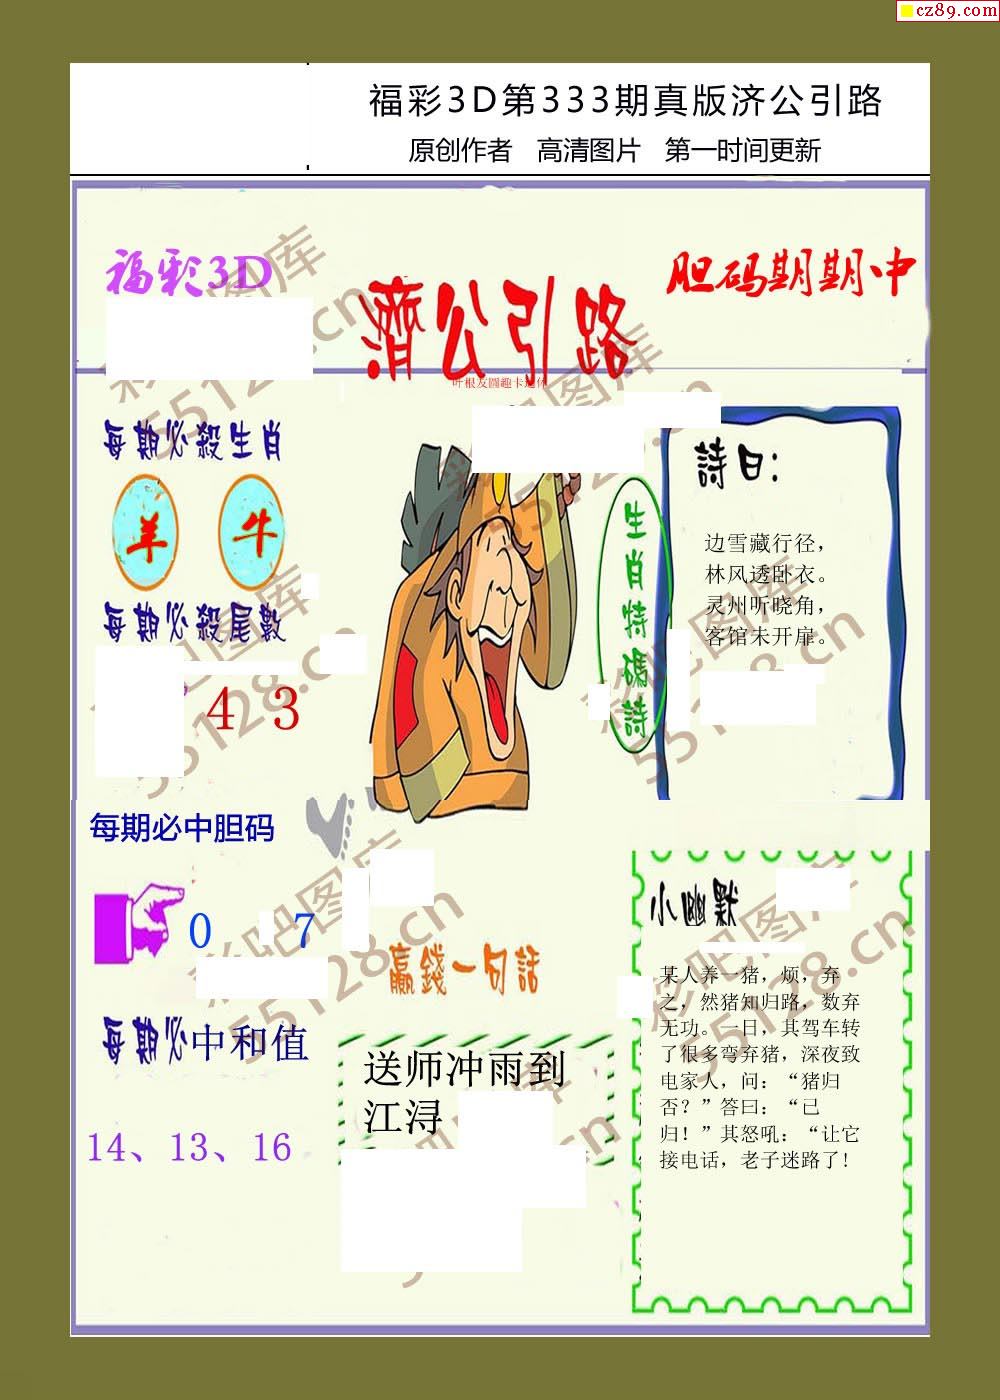 cz89.com
福彩3D第333期真版济公引路
原创作者 高清图片 第一时间更新
福彩3D
濟公引路
胆码期期中
叶根友圆趣卡通体
每期必殺生肖
羊 牛
每期必殺尾數
4 3
生肖特碼詩
詩曰：
边雪藏行径，
林风透卧衣。
灵州听晓角，
客馆未开扉。
每期必中胆码
0 7
每期必中和值
14、13、16
贏錢一句話
送师冲雨到
江浔
小幽默
某人养一猪，烦，弃
之，然猪知归路，数弃
无功。一日，其驾车转
了很多弯弃猪，深夜致
电家人，问：“猪归
否？”答曰：“已
归！”其怒吼：“让它
接电话，老子迷路了！
彩吧图库
55128.cn